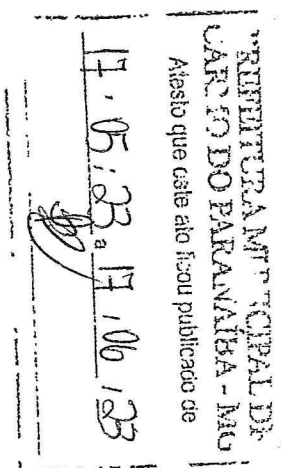 PREFEITURA MUNICIPAL DE
CARMO DO PARANAÍBA - MG
Atesto que este ato ficou publicado de
17 / 05 / 23 a 17 / 06 / 23